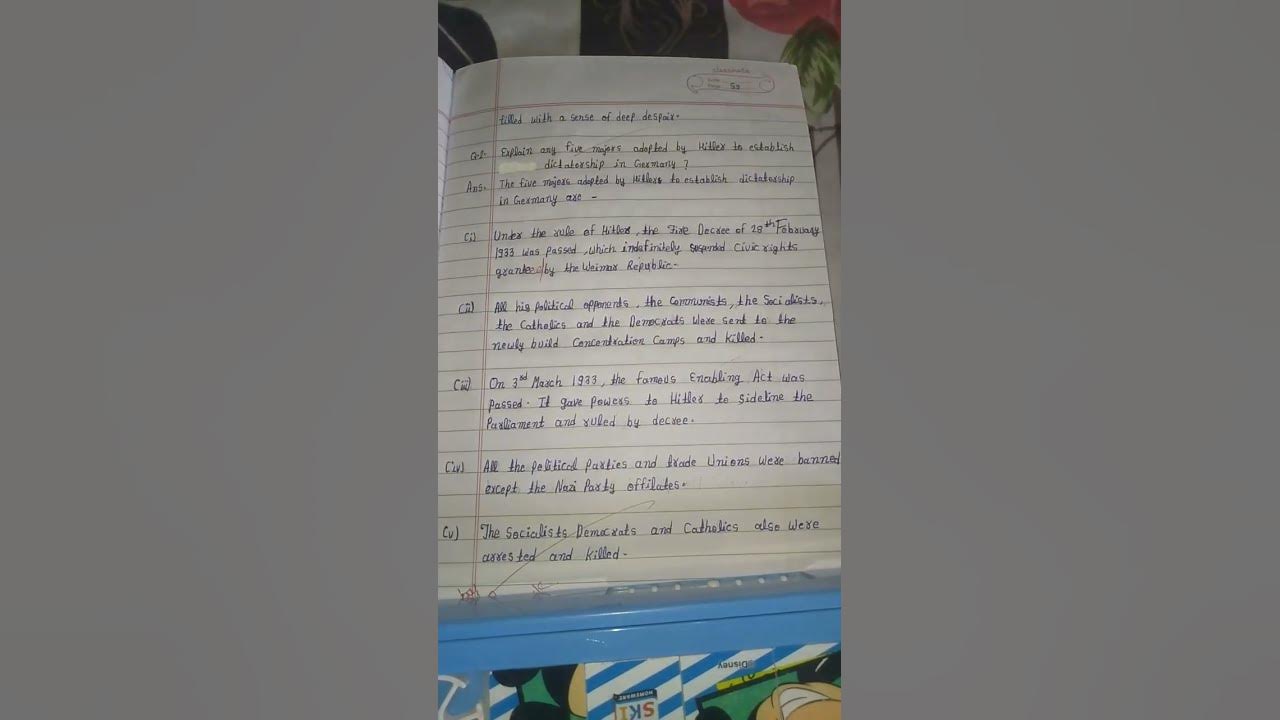 classmate
Date
Page 53
filled with a sense of deep despair.
Q-2. Explain any five majors adopted by Hitler to establish
dictatorship in Germany ?
Ans. The five majors adopted by Hitlers to establish dictatorship
in Germany are -
(i) Under the rule of Hitler, the Fire Decree of 28th February
1933 was passed, which indefinitely suspended Civic rights
granted by the Weimar Republic.
(ii) All his political opponents, the Communists, the Socialists,
the Catholics and the Democrats were sent to the
newly build Concentration Camps and killed.
(iii) On 3rd March 1933, the famous Enabling Act was
passed. It gave powers to Hitler to sideline the
Parliament and ruled by decree.
(iv) All the political parties and trade Unions were banned
except the Nazi Party affilates.
(v) The Socialists Democrats and Catholics also were
arrested and killed.
Disney
SKI
HOMEWARE